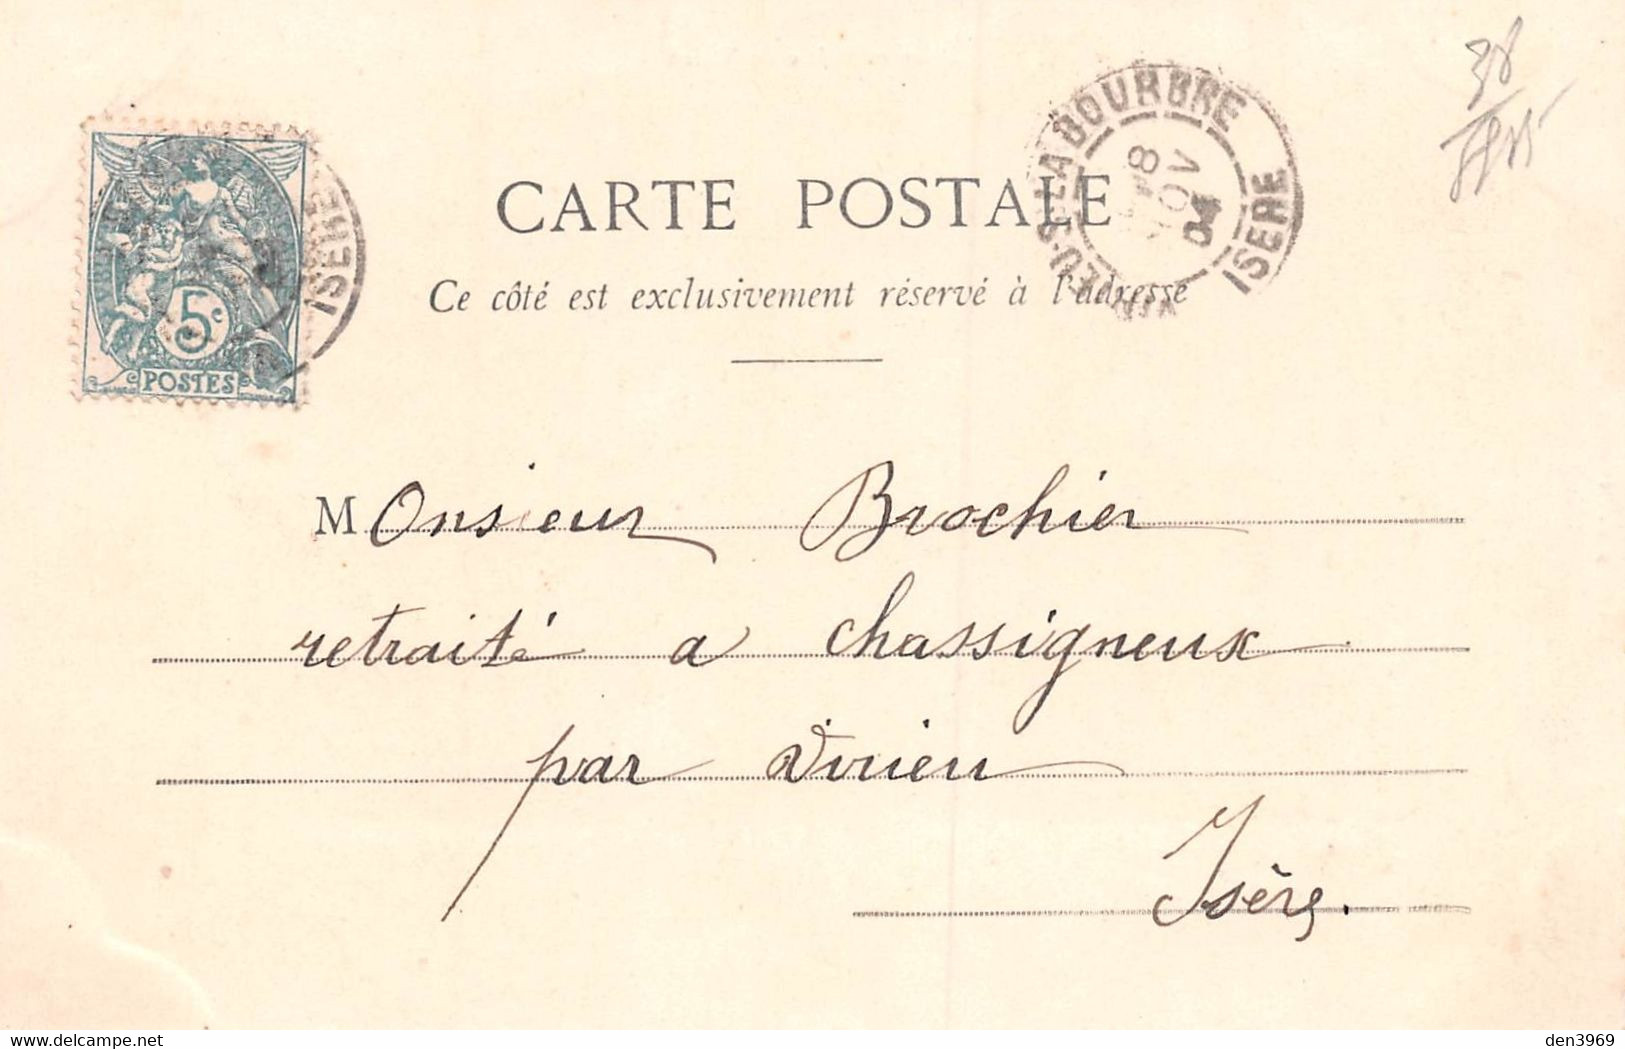 38
CARTE POSTALE
Ce côté est exclusivement réservé à l'adresse
5c
POSTES
ISÈRE
LA BOURBRE
8
NOV
04
ISERE
Monsieur Brochier
retraité a chassigneux
par Virieu
Isère.
den3969